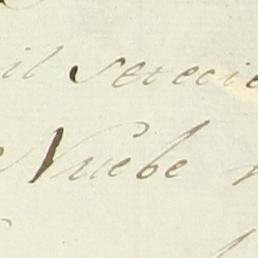 il setecie
Nuebe